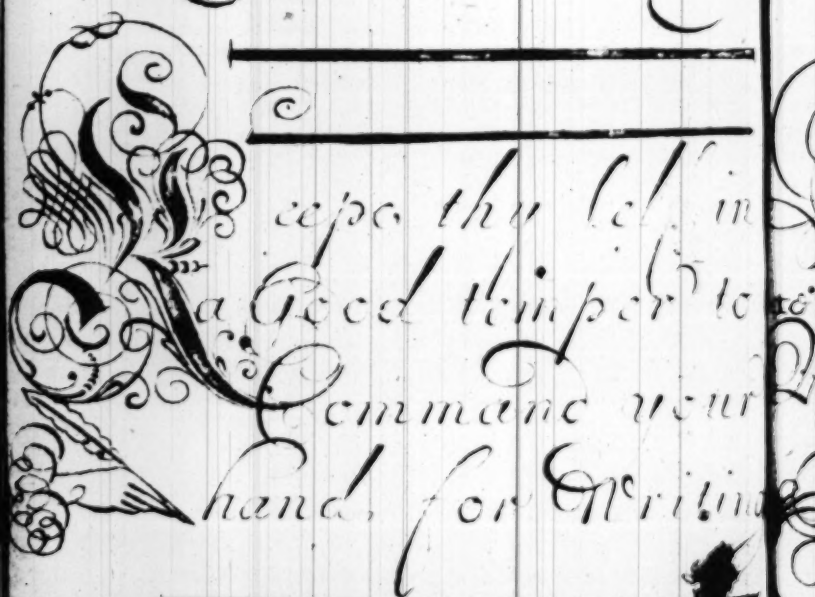 Keepe thy self in
a Good temper to
Command your
hand for Writing